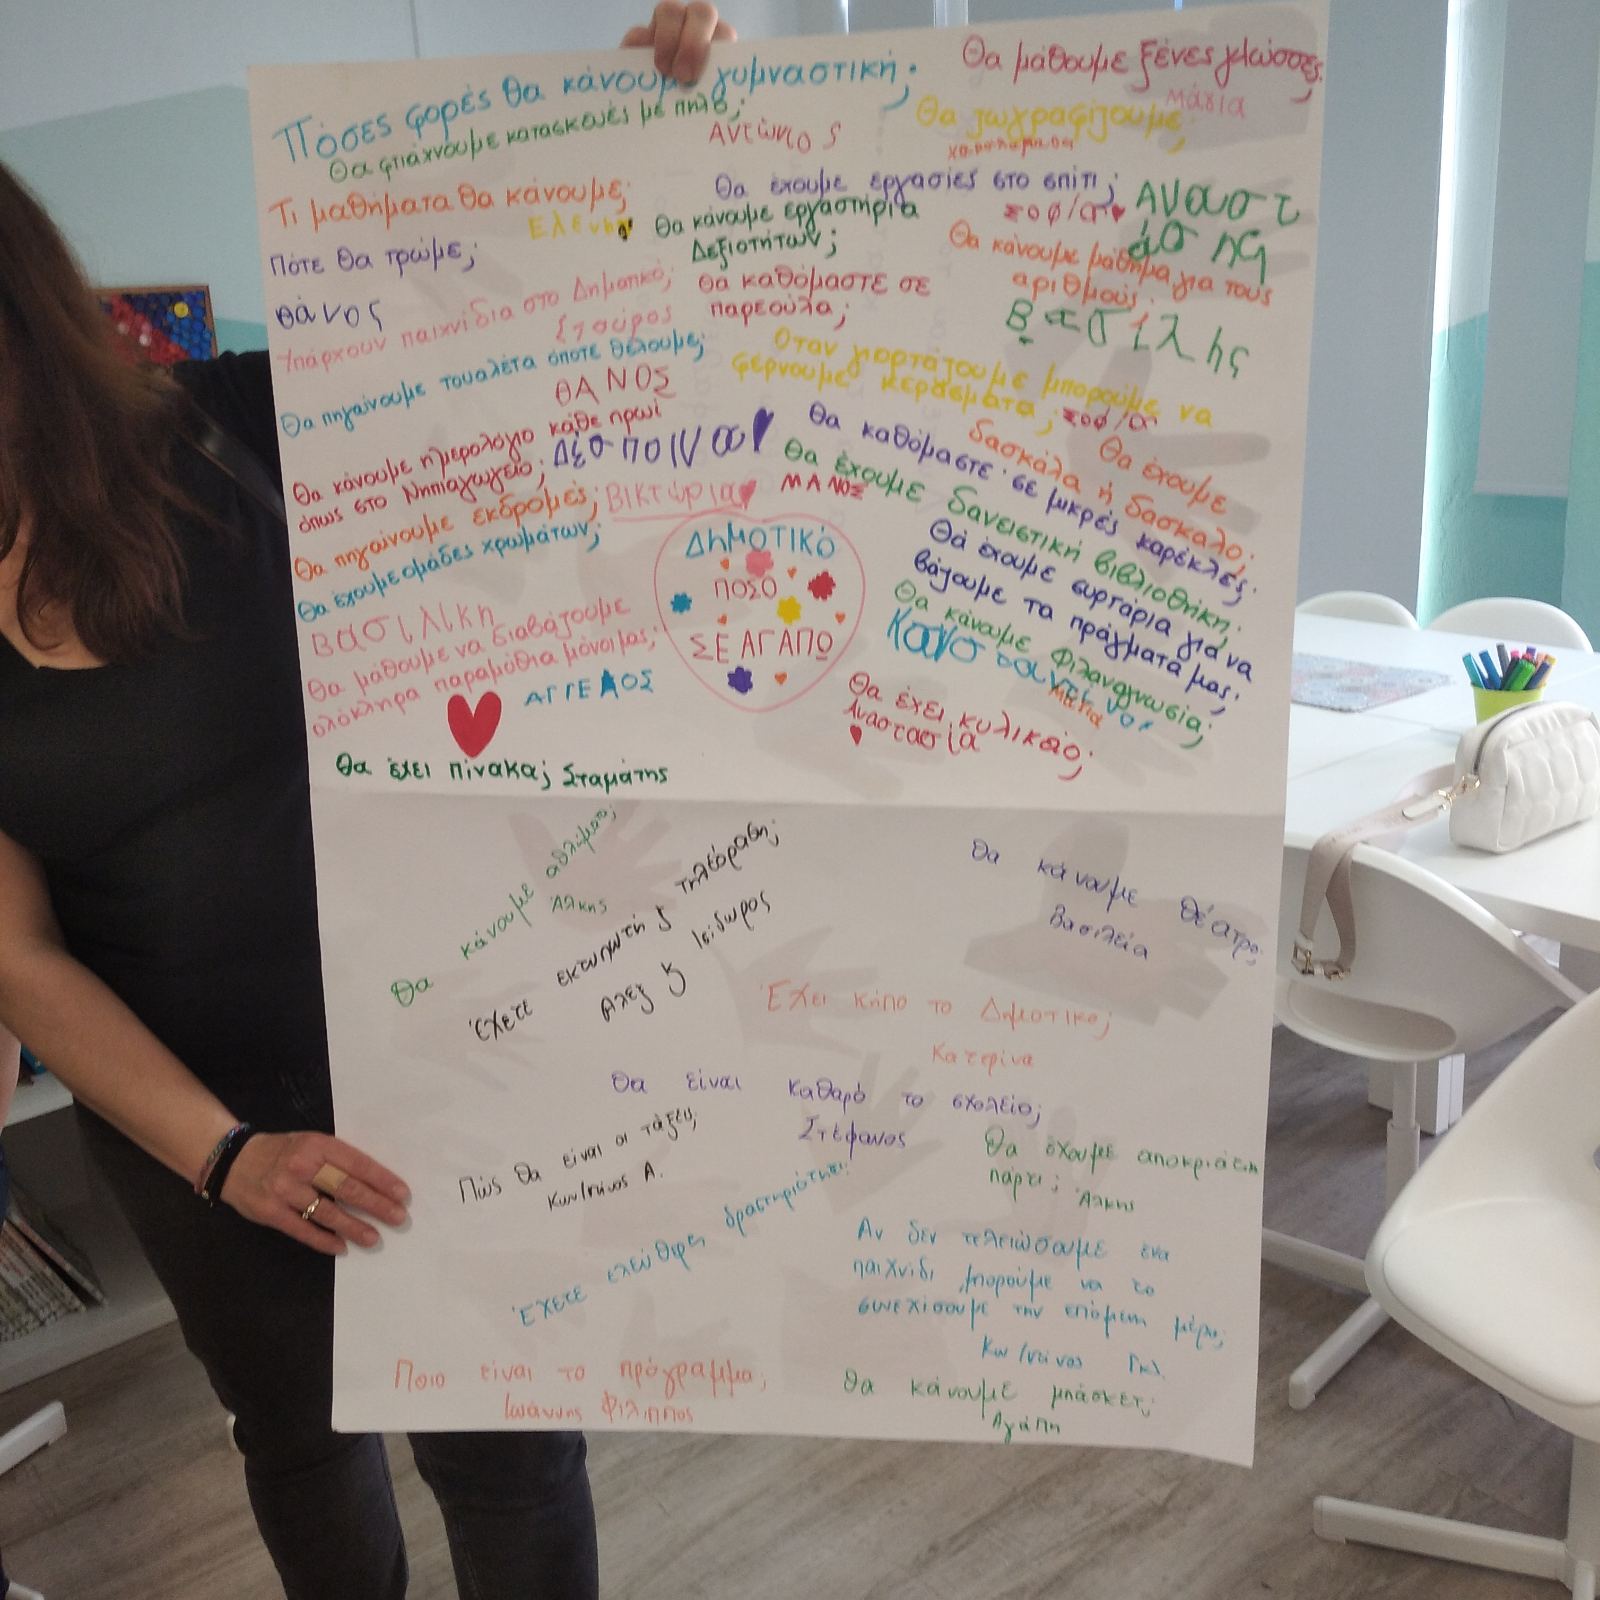 Πόσες φορές θα κάνουμε γυμναστική;
Θα μάθουμε ξένες γλώσσες;
Μάσια
Θα φτιάχνουμε κατασκευές με πηλό;
Αντώνιος
Θα ζωγραφίζουμε;
Τι μαθήματα θα κάνουμε;
Ελένη
Θα έχουμε εργασίες στο σπίτι;
Σοφία
Αναστ
άσης
Θα κάνουμε εργαστήρια
Δεξιοτήτων;
Πότε θα τρώμε;
Θάνος
Θα κάνουμε μάθημα για τους
αριθμούς;
Βασίλης
Υπάρχουν παιχνίδια στο Δημοτικό;
Σταύρος
Θα καθόμαστε σε
παρεούλα;
Θα πηγαίνουμε τουαλέτα όποτε θέλουμε;
ΘΑΝΟΣ
Όταν γιορτάζουμε μπορούμε να
φέρνουμε κεράσματα;
Σοφία
Θα κάνουμε ημερολόγιο κάθε πρωί
όπως στο Νηπιαγωγείο;
Δέσποινα
Θα καθόμαστε σε μικρές καρέκλες;
Θα έχουμε
δασκάλα ή δάσκαλο;
Θα πηγαίνουμε εκδρομές;
ΒΙΚΤώρια
Θα έχουμε δανειστική βιβλιοθήκη;
ΜΑΝΟΣ
Θα έχουμε ομάδες χρωμάτων;
ΔΗΜΟΤΙΚό
ΠΟΣΟ
ΣΕ ΑΓΑΠΩ
Θα έχουμε συρτάρια για να
βάζουμε τα πράγματα μας;
Βασιλική
Θα μάθουμε να διαβάζουμε
ολόκληρα παραμύθια μόνοι μας;
ΑΓΓΕΛΟΣ
Θα κάνουμε Φιλαναγνωσία;
Κωνσταντίνος
Θα έχει κυλικείο;
Αναστασία
Θα έχει πίνακα; Σταμάτης
Θα κάνουμε αθλήματα;
Άλκης
Έχετε εκτυπωτή ή τηλεόραση;
Ισίδωρος
Θα κάνουμε θέατρο;
Βασιλεία
Έχει κήπο το Δημοτικό;
Κατερίνα
Θα είναι καθαρό το σχολείο;
Στέφανος
Πώς θα είναι οι τάξεις;
Κων/τίνος Α.
Θα έχουμε αποκριάτικο
πάρτι; Άλκης
Έχετε ελεύθερες δραστηριότητες;
Αν δεν τελειώσουμε ένα
παιχνίδι μπορούμε να το
συνεχίσουμε την επόμενη μέρα;
Κων/ντίνος Γκλ.
Ποιο είναι το πρόγραμμα;
Ιωάννης Φίλιππος
Θα κάνουμε μπάσκετ;
Αγάπη